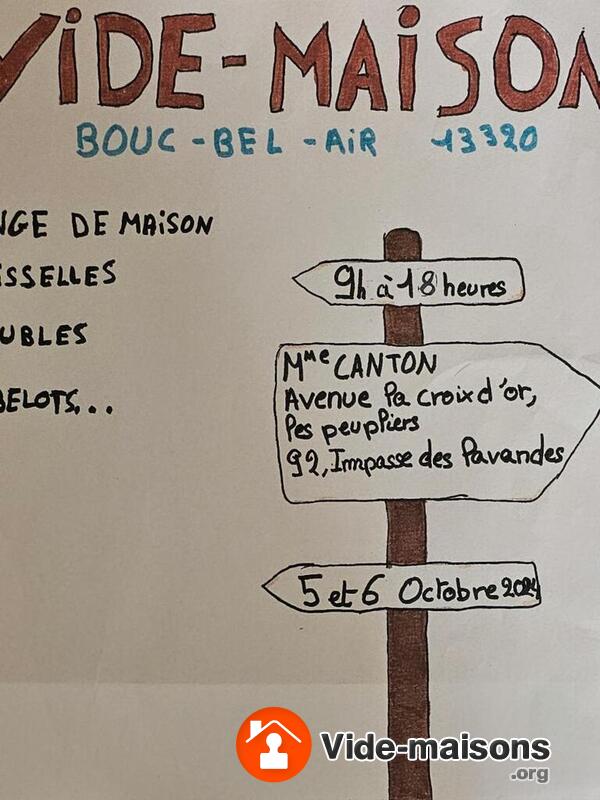 VIDE-MAISON
BOUC-BEL-AIR 13320
NGE DE MAISON
ISSELLES
UBLES
BELOTS...
9h à 18 heures
Mme CANTON
Avenue la croix d'or,
les peupliers
92, Impasse des lavandes
5 et 6 Octobre 2024
Vide-maisons
.org